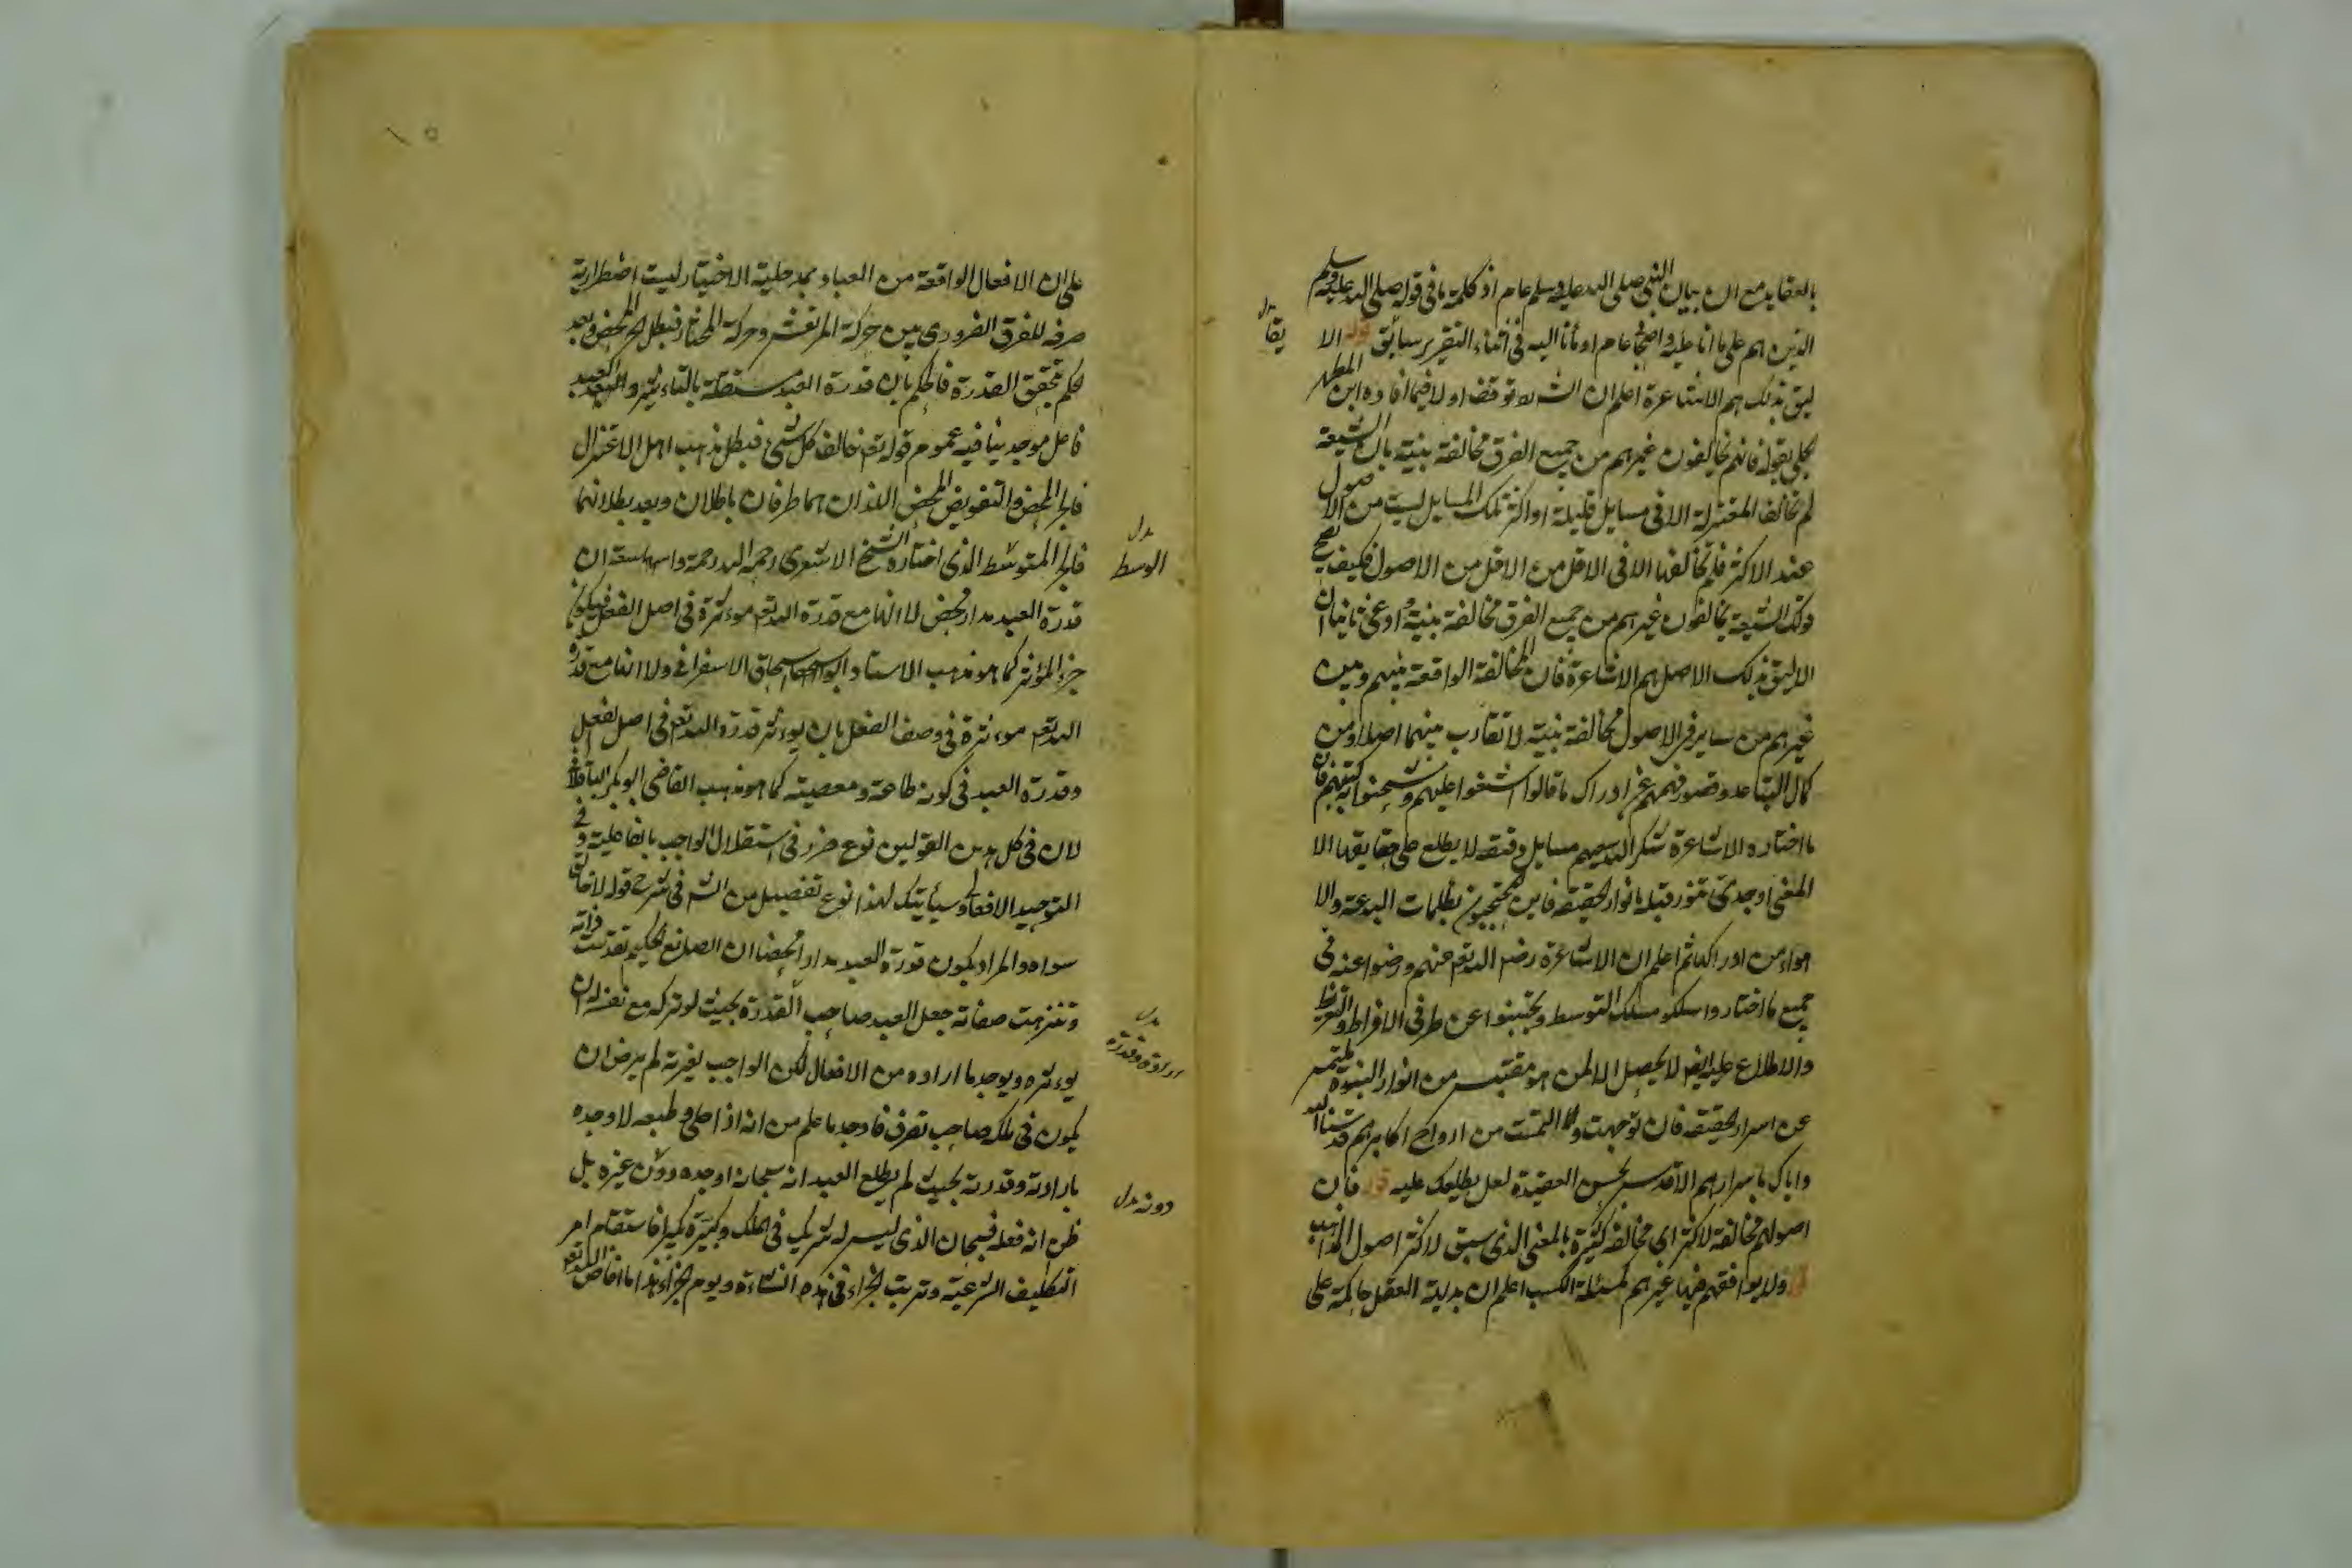 بالعقايد مع ان بيان النبي صلى الله عليه وسلم عام اذ كلمة ما في قوله صلى الله عليه وسلم
الذين هم على ما انا عليه واصحابي عام اومأنا اليه في اثناء التقرير سابق قوله الا
ليق بذلك هم الاشاعرة اعلم ان الشارح توقف اولا فيما افاده ابن المطهر
الحلي بقوله فانهم يخالفون غيرهم من جميع الفرق مخالفة بينة بان الشيعة
لم تخالف المعتزلة الا في مسايل قليلة اواكثر تلك المسايل ليست من الاصول
عند الاكثر فلم تخالفها الا في الاقل من الاقل من الاصول فكيف يصح
قولك الشيعة يخالفون غيرهم من جميع الفرق مخالفة بينة وادعى ثانيا ان
الاليق بذلك الاصل هم الاشاعرة فان المخالفة الواقعة بينهم وبين
غيرهم من ساير فى الاصول مخالفة بينة لا تقارب بينهما اصلا ومن
كمال التباعد وقصور فهمهم عن ادراك ما قالوا اشنعوا عليهم وشحنوا به كتبهم فان
ما اختاره الاشاعرة شكر الله سعيهم مسايل دقيقة لا يطلع على حقايقها الا
المغنى اوجدى تنور قبله بانوار الحقيقة فاين المحتجبون بظلمات البدعة والا
هواء من ادراكها ثم اعلم ان الاشاعرة رضي الله تعم عنهم ورضوا عنه في
جميع ما اختاروا سلكو مسلك التوسط وتجنبوا عن طرفي الافراط والتفريط
والاطلاع عليه ايضا لا يحصل الا لمن هو مقتبس من انوار النبوة
عن اسرار الحقيقة فان توجهت والتمست من ارواح اكابرهم قدسنا الله
واياك باسرارهم الاقدس بحسن العقيدة لعل يطلعك عليه قوله فان
اصولهم مخالفة لاكثر اي مخالفة كثيرة بالمعنى الذي سبق لاكثر اصول المذاهب
قوله ولا يوافقهم فيها غيرهم كمسئلة الكسب اعلم ان بديهة العقل حاكمة على
بدل
يقا
على ان الافعال الواقعة من العباد بمدخلية الاختيار ليست اضطرارية
صرفه للفرق الضروري بين حركة المرتعش وحركة المختار فبطل الجبر المحض وبعد
لحكم بتحقق القدرة فالحكم بان قدرة العبد مستقلة بالتاءثير والعبد
فاعل موجد ينافيه عموم قوله تعم خالق كل شيء فبطل مذهب اهل الاعتزال
فالجبر المحض والتفويض المحض اللذان هما طرفان باطلان وبعد بطلانهما
فالجبر المتوسط الذي اختاره الشيخ الاشعري رحمه الله رحمة واسعة ان
قدرة العبد مدار محض لا انها مع قدرة الله تعم موءثرة في اصل الفعل فيكون
جزء المؤثر كما هو مذهب الاستاد ابو اسحاق الاسفراني ولا انها مع قدرة
الله تعم موءثرة في وصف الفعل بان يوءثر قدرة الله تعم في اصل الفعل
وقدرة العبد في كونه طاعة ومعصية كما هو مذهب القاضي ابو بكر الباقلاني
لان في كل هذين القولين نوع ضرر في استقلال الواجب بالفاعلية وفي
التوحيد الافعالي وسيأتيك لهذا نوع تفصيل من الشر في شرح قوله لا خالق
سواه والمراد بكون قدرة العبد مدارا محضا ان الصانع الحكيم تقدست ذاته
وتنزهت صفاته جعل العبد صاحب القدرة بحيث لو تركه مع نفسه ان
يوءثره ويوجد ما اراده من الافعال لكن الواجب لغيرته لم يرض ان
يكون في ملكه صاحب تصرف فاوجد ما علم من انه اذا خلى وطبعه لاوجده
بارادته وقدرته بحيث لم يطلع العبد انه سبحانه اوجده دون غيره بل
ظن انه فعله فسبحان الذي ليس له شريك في الملك وكبره تكبيرا فاستقام امر
التكليف الشرعية وترتب الجزاء في هذه النشاءة ويوم الجزاء هذا ما افاض الله تعم
بدل
الوسط
بدل
ارادة وقدرة
دونه بدل
١٥